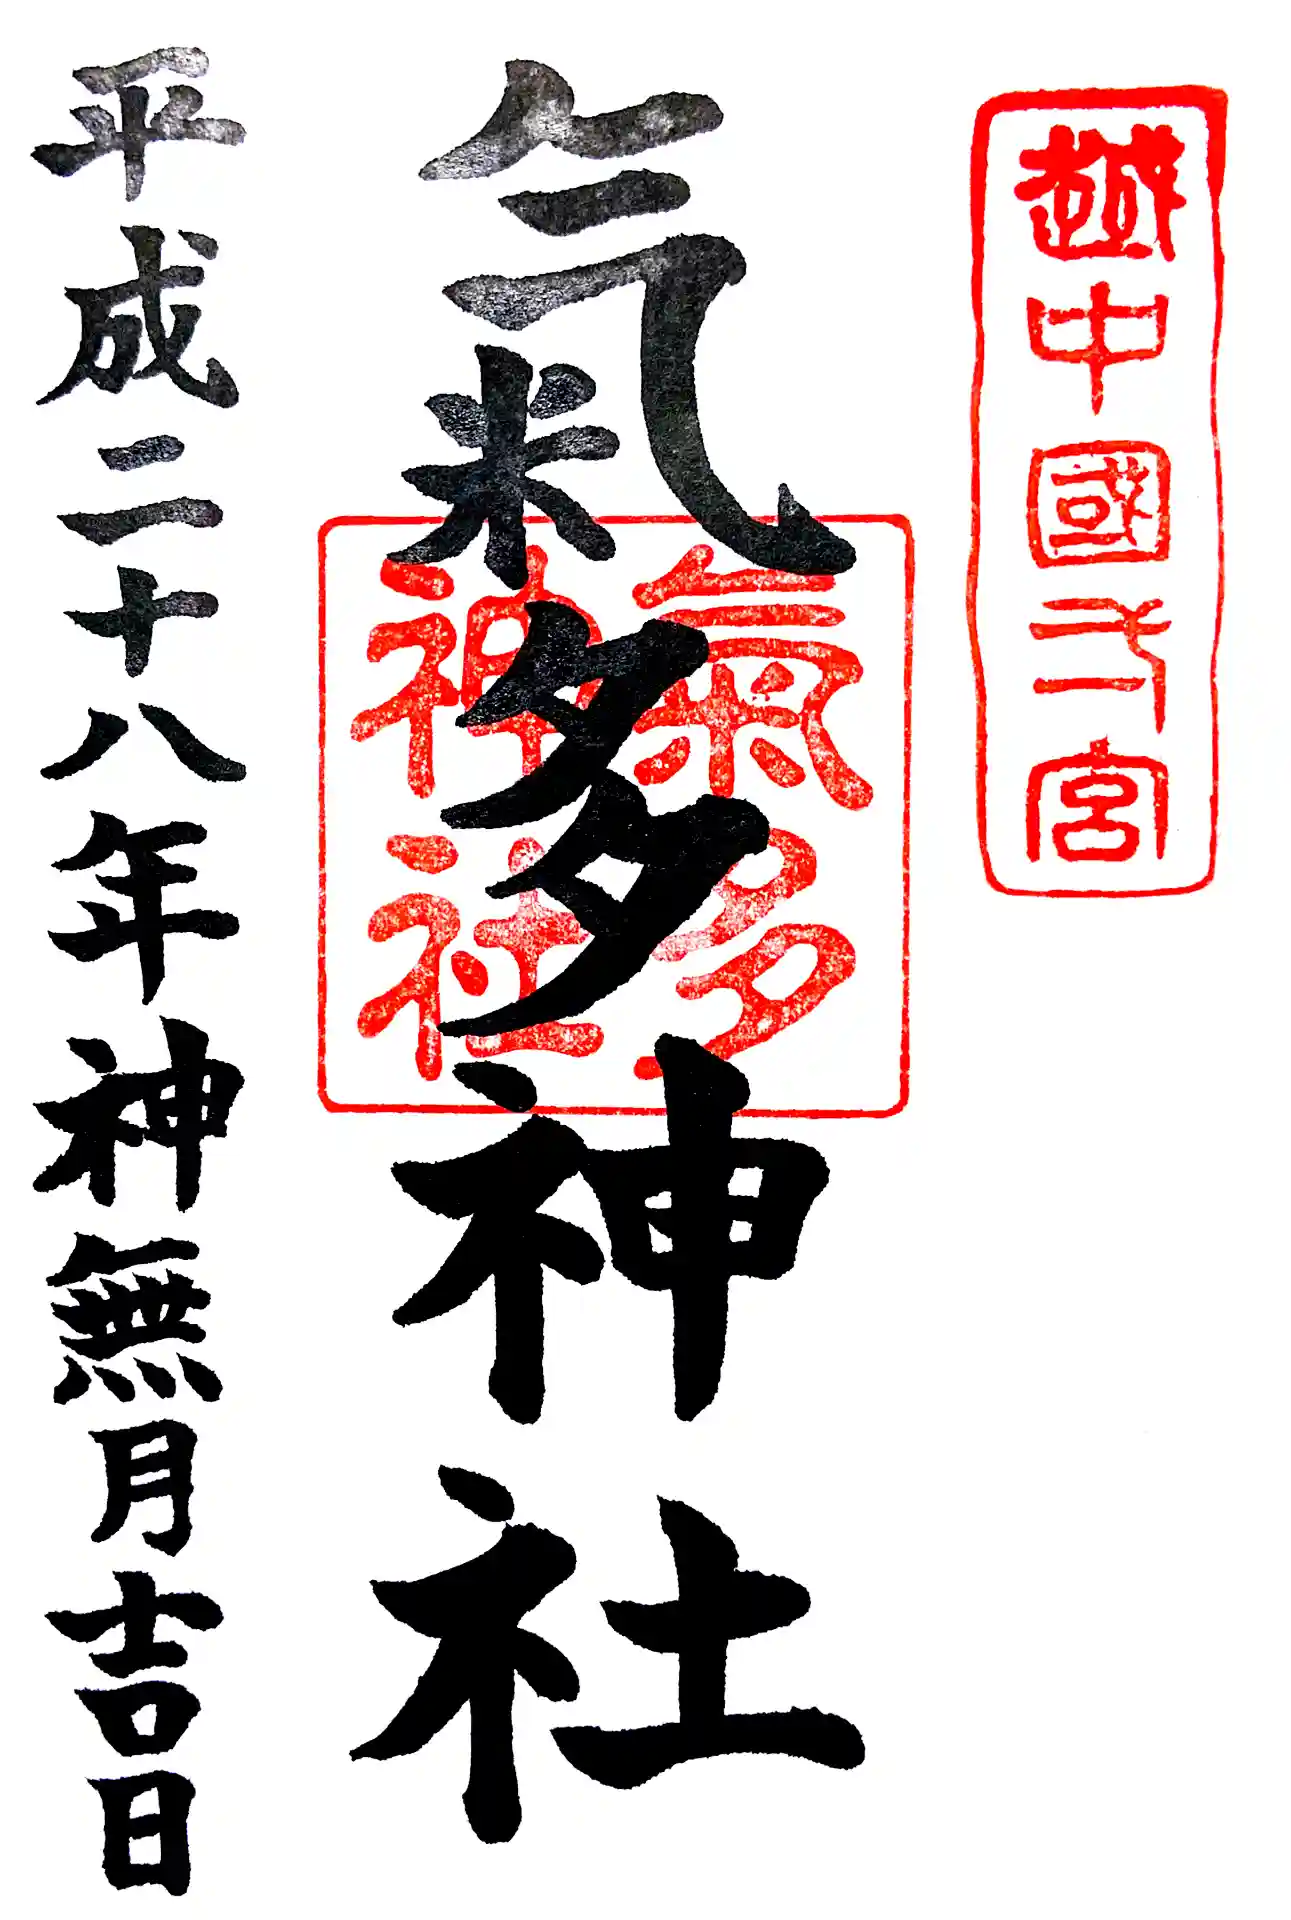 越中國弌宮
氣多神社
氣多
神社
平成二十八年神無月吉日